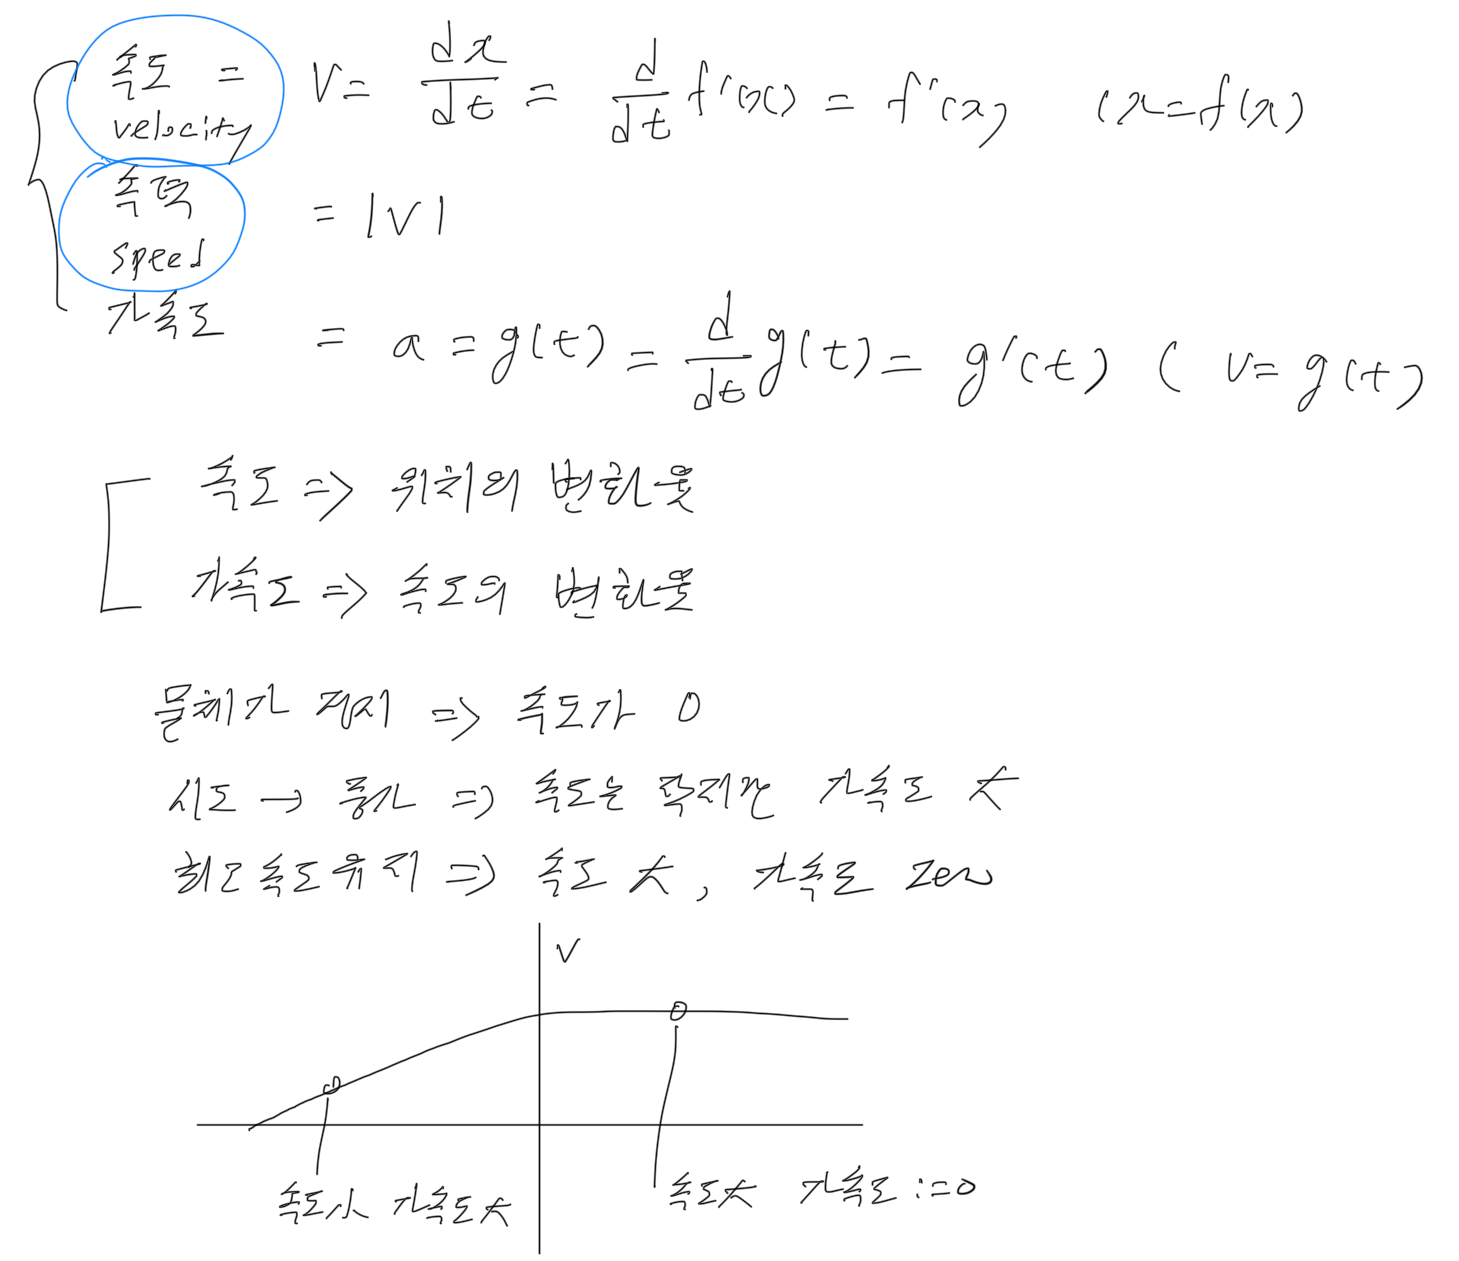 속도 = v = dx/dt = d/dt f'(x) = f'(x) (x=f(x)
velocity
속력 = |v|
speed
가속도 = a = g(t) = d/dt g(t) = g'(t) ( v = g(t)
속도 => 위치의 변화율
가속도 => 속도의 변화율
물체가 정지 => 속도가 0
시도 → 증가 => 속도는 작지만 가속도 大
최고속도유지 => 속도 大, 가속도 zero
v
속도小 가속도大
속도大 가속도 :=0